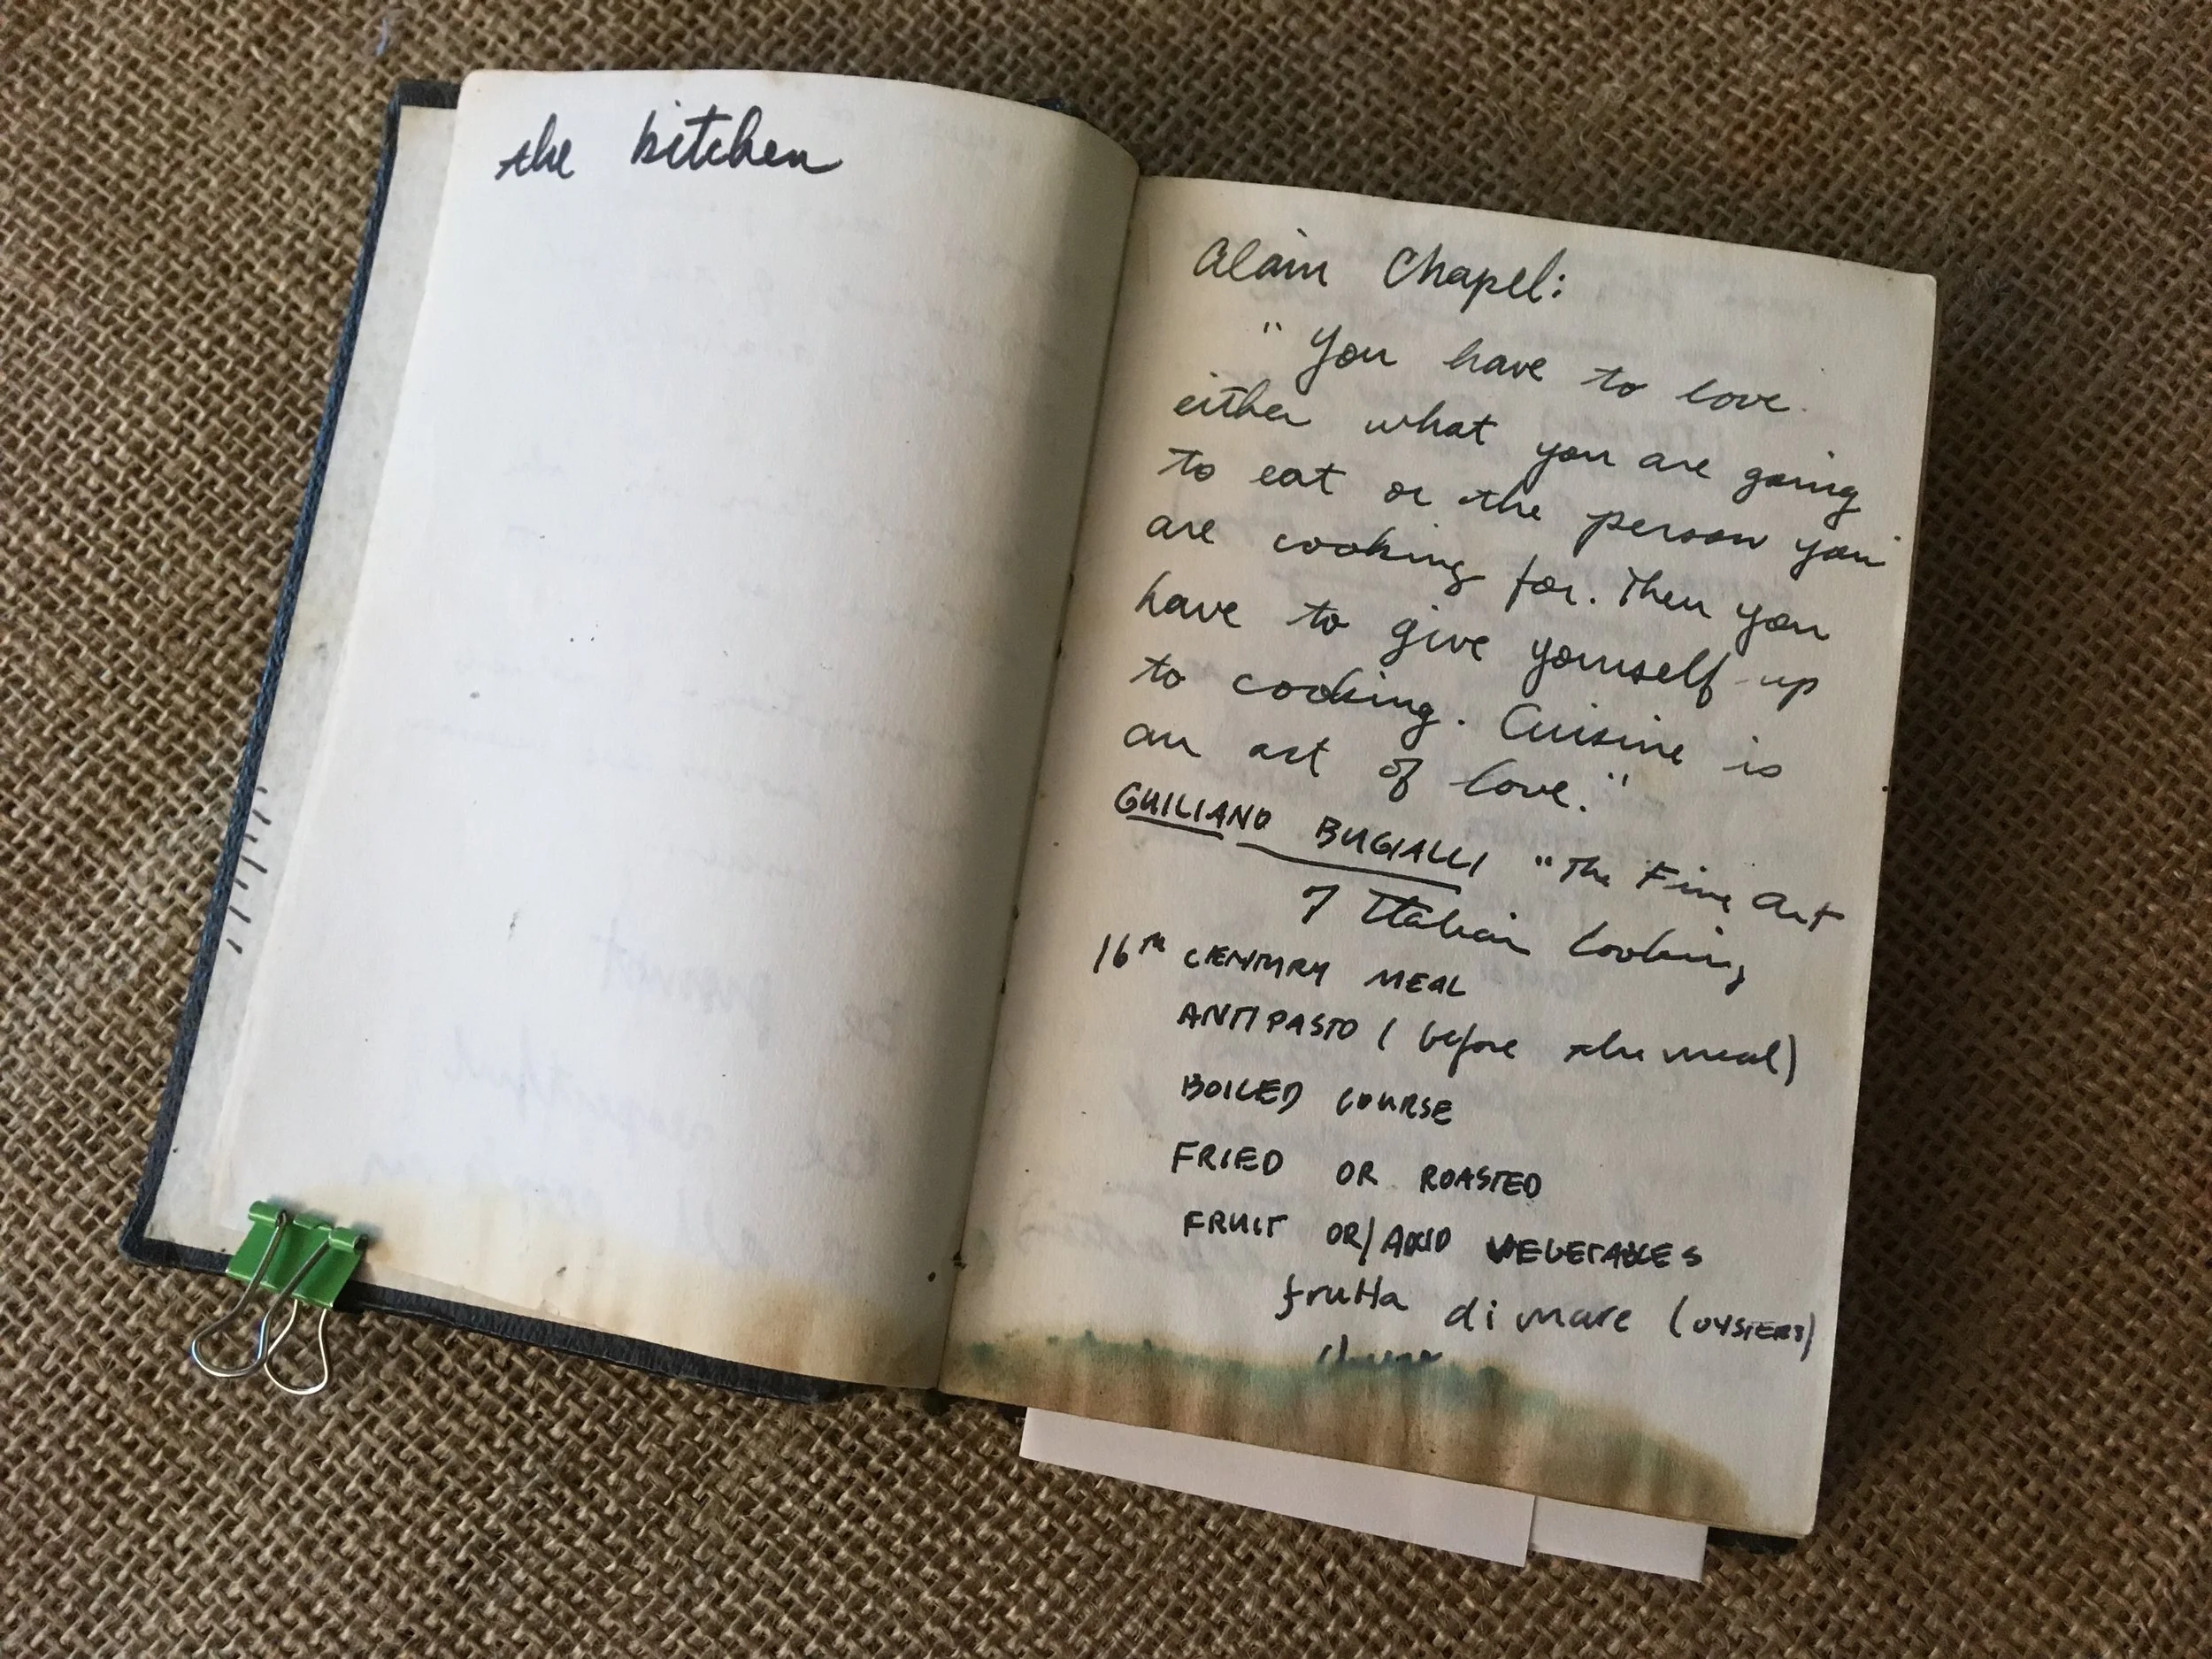 the kitchen
Alain Chapel:
"You have to love
either what you are going
to eat or the person you
are cooking for. Then you
have to give yourself up
to cooking. Cuisine is
an art of love."
GUILIANO BUGIALLI "The Fine Art
of Italian Cooking
16TH CENTURY MEAL
ANTIPASTO (before the meal)
BOILED COURSE
FRIED OR ROASTED
FRUIT OR/AND VEGETABLES
frutta di mare (OYSTERS)